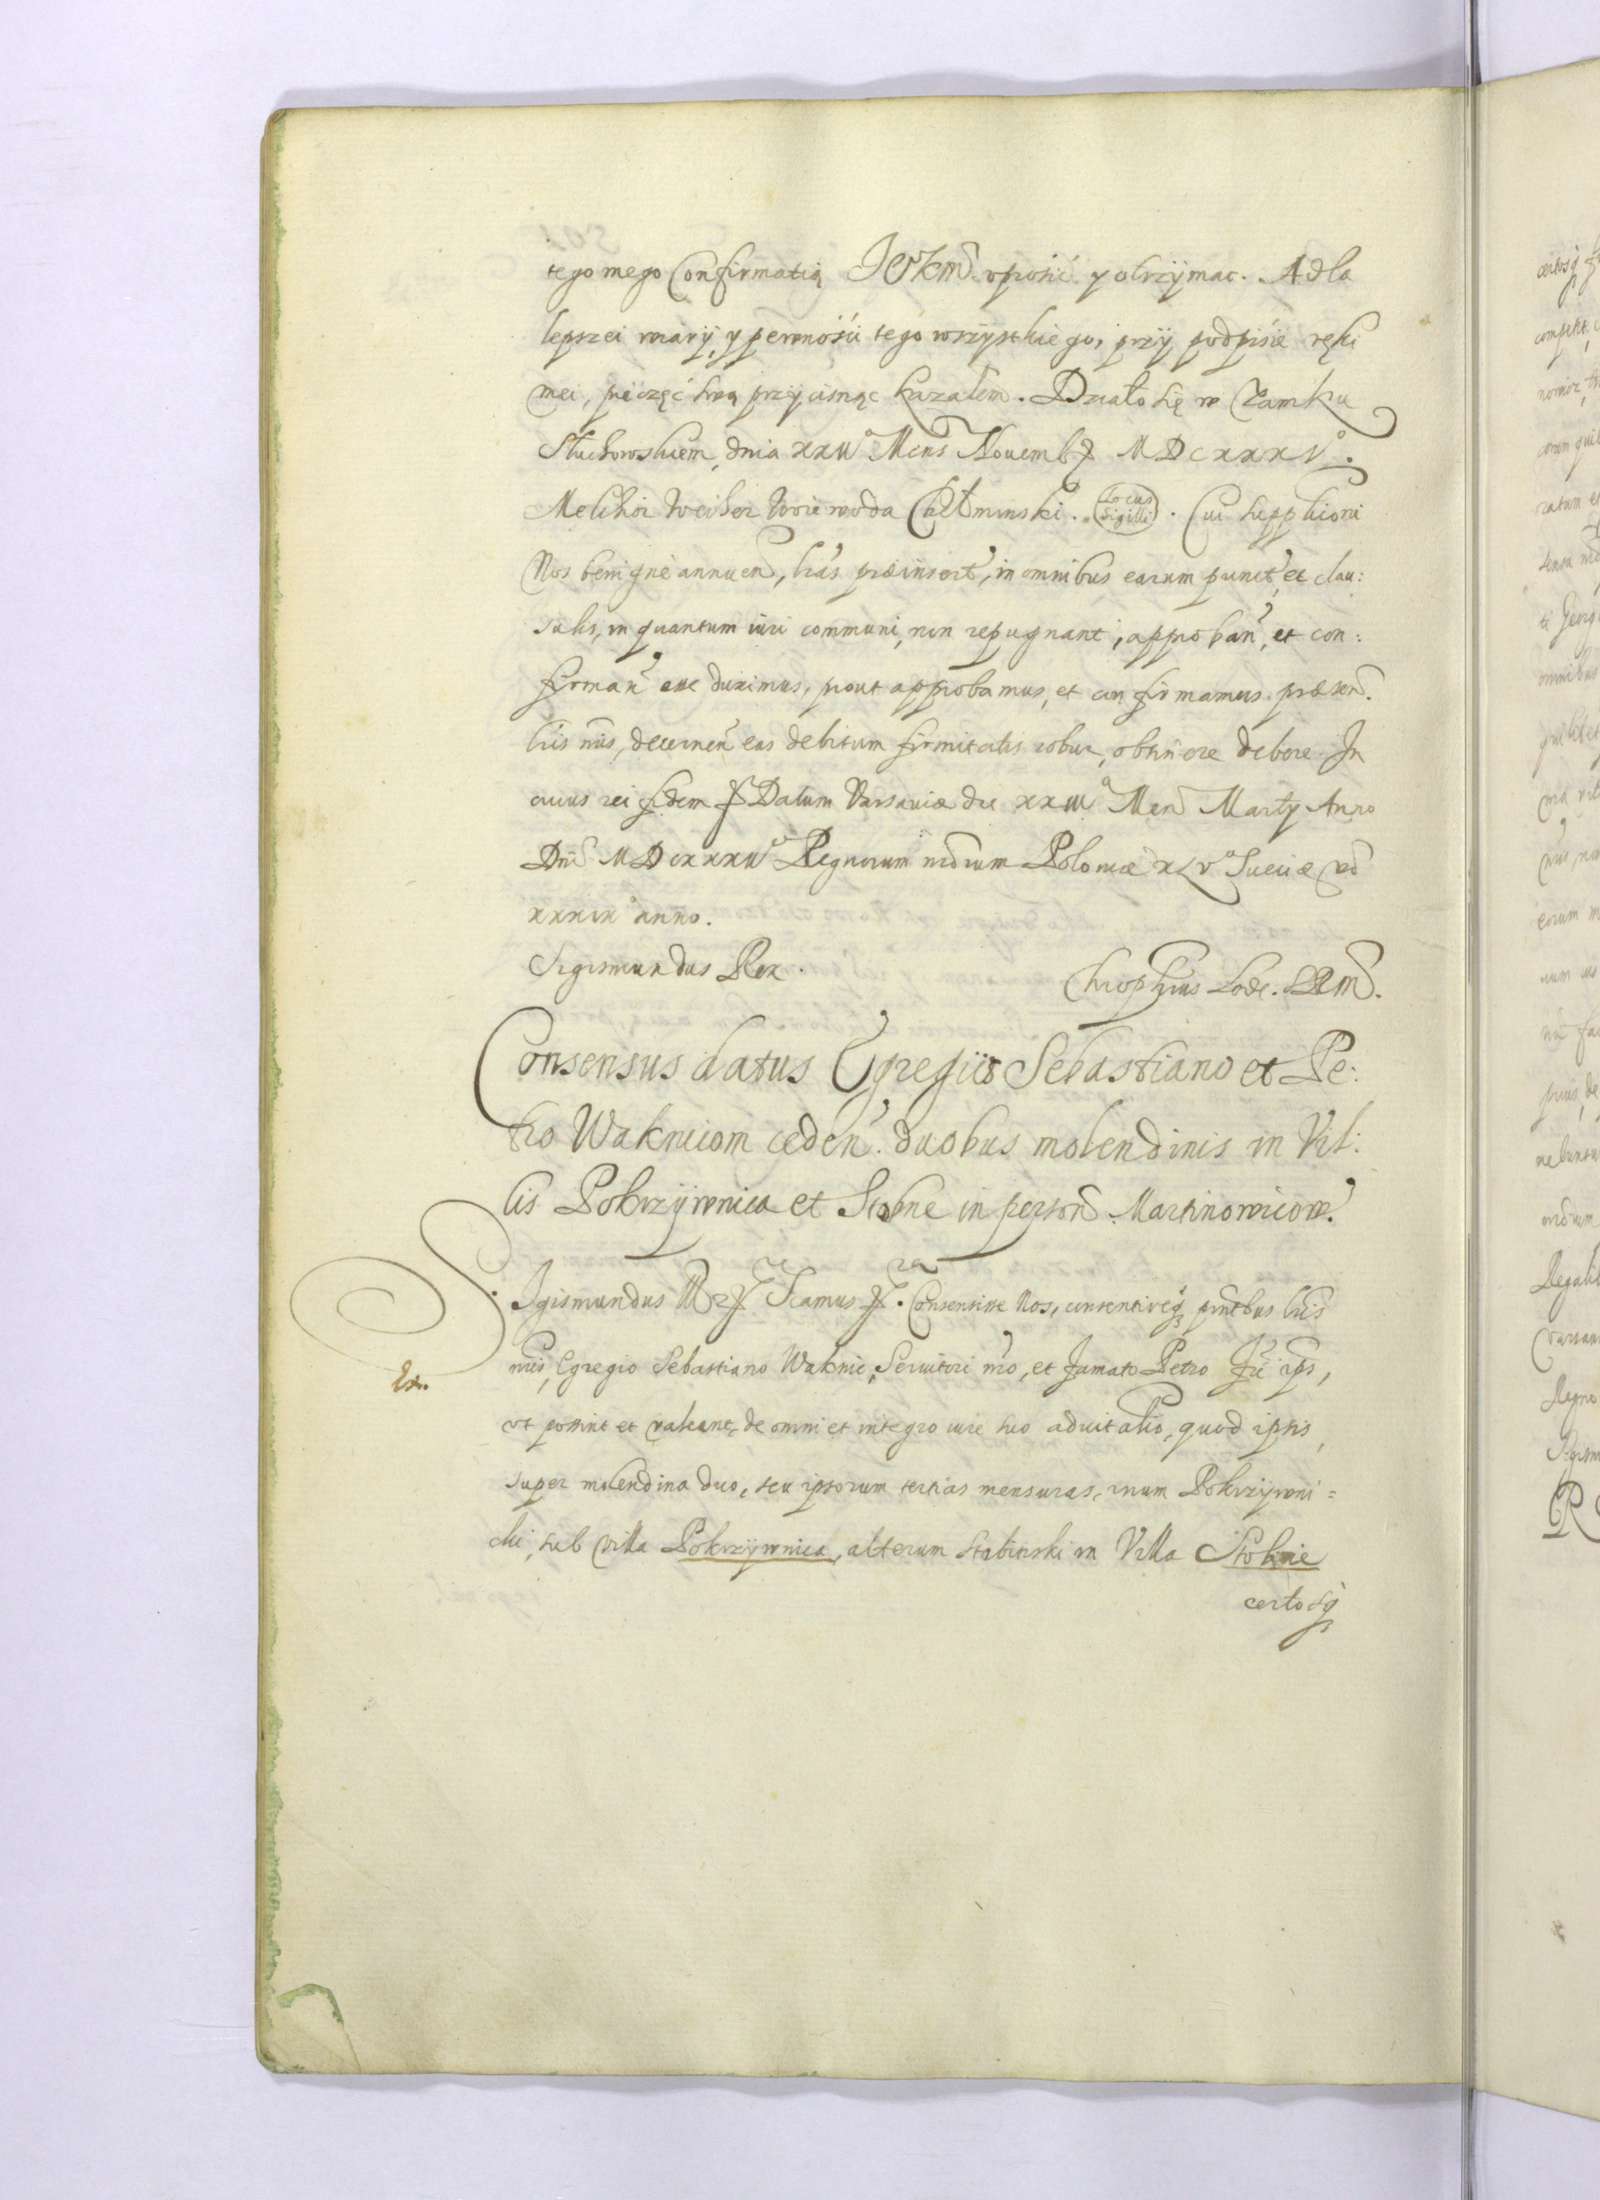 tego mego Confirmatią JeoKm uprosic y otrzÿmac. A dla
lepszei wiarÿ, y pewnosci tego wszystkiego, przÿ podpisie ręki
mei, pieczęć swą przÿcisnąc kazałem. Działo się w Zamku
Słuchowskiem, dnia Mens Nouemb MDCXXX
Melchior Weiher Woiewoda Chełminski. Locus Sigilli. Cui supplicioni
Nos benignè annuen, lras præinsert, in omnibus earum punct, et clau:
sulis, in quantum iuri communi, non repugnant, approban, et con:
firman esse duximus, prout approbamus, et confirmamus præsen.
lris nris, decernen eas debitum firmitatis robur, obtinere debere. In
cuius rei fidem Datum Varsauiæ die Men Martÿ Anno
Dni Regnorum nrorum Poloniæ XLV° Sueciæ vo
anno.
Sigismundus Rex.
Chrophrus Bode. SRM.
Consensus datus Egregiis Sebastiano et Pe:
tro Waknicom ceden. duobus molendinis in Vil:
lis Pokrzÿwnica et Stobne in person Martinowicow.
Sigismundus Scamus. Consensisse Nos, consentireq pntbus lris
nris, Egregio Sebastiano Waknic, Seruitori nro, et Famato Petro Fri ips,
Ex.
vt possint et valeant, de omni et integro iure suo aduitalio, quod ipsis,
super molendina duo, seu ipsorum tertias mensuras, vnum Pokrzÿwni=
cki, sub Villa Pokrzÿwnica, alterum in Villa Stobnie
certosq